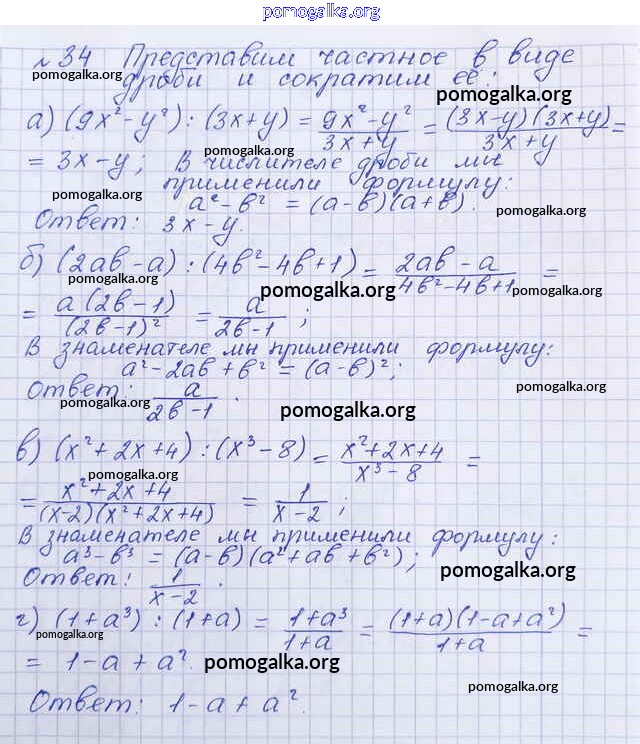 pomogalka.org
№ 34 Представим частное в виде
pomogalka.org дроби и сократим её:
pomogalka.org
а) (9x² - y²) : (3x + y) = 9x² - y² / 3x + y = (3x - y)(3x + y) / 3x + y =
pomogalka.org
= 3x - y; В числителе дроби мы
применили формулу:
pomogalka.org
a² - b² = (a - b)(a + b).
pomogalka.org
Ответ: 3x - y.
б) (2ab - a) : (4b² - 4b + 1) = 2ab - a / 4b² - 4b + 1 =
pomogalka.org pomogalka.org
= a(2b - 1) / (2b - 1)² = a / 2b - 1 ;
В знаменателе мы применили формулу:
a² - 2ab + b² = (a - b)²;
pomogalka.org
Ответ: a / 2b - 1 .
pomogalka.org pomogalka.org
в) (x² + 2x + 4) : (x³ - 8) = x² + 2x + 4 / x³ - 8 =
pomogalka.org
= x² + 2x + 4 / (x - 2)(x² + 2x + 4) = 1 / x - 2 ;
В знаменателе мы применили формулу:
a³ - b³ = (a - b)(a² + ab + b²);
pomogalka.org
Ответ: 1 / x - 2 .
г) (1 + a³) : (1 + a) = 1 + a³ / 1 + a = (1 + a)(1 - a + a²) / 1 + a =
pomogalka.org
= 1 - a + a². pomogalka.org
pomogalka.org
Ответ: 1 - a + a².